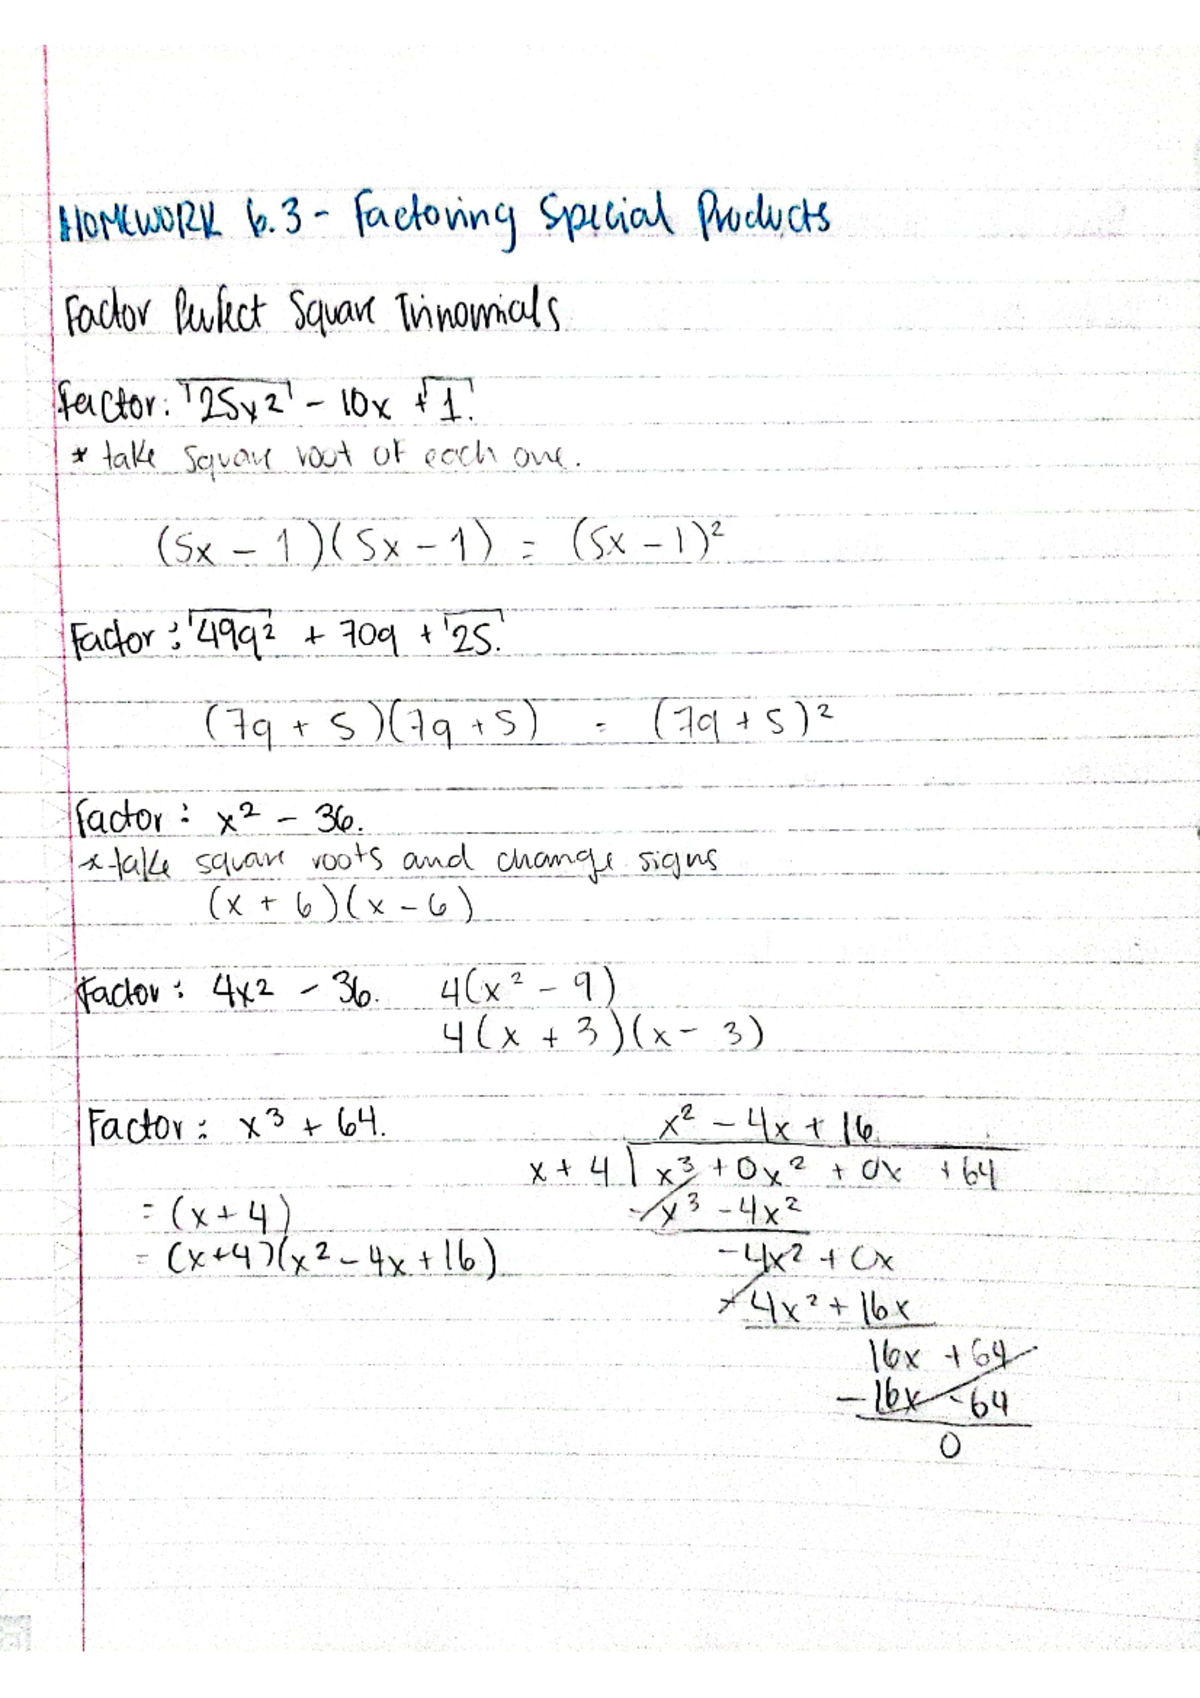 HOMEWORK 6.3 - Factoring Special Products
Factor Perfect Square Trinomials
Factor: √25x² - 10x + √1.
* take square root of each one.
(5x - 1)(5x - 1) = (5x - 1)²
Factor: √49q² + 70q + √25.
(7q + 5)(7q + 5) = (7q + 5)²
Factor: x² - 36.
* take square roots and change signs
(x + 6)(x - 6)
Factor: 4x² - 36. 4(x² - 9)
4(x + 3)(x - 3)
Factor: x³ + 64. x² - 4x + 16
x + 4 ) x³ + 0x² + 0x + 64
= (x + 4) - x³ - 4x²
= (x+4)(x² - 4x + 16) - 4x² + 0x
+ 4x² + 16x
16x + 64
- 16x - 64
0